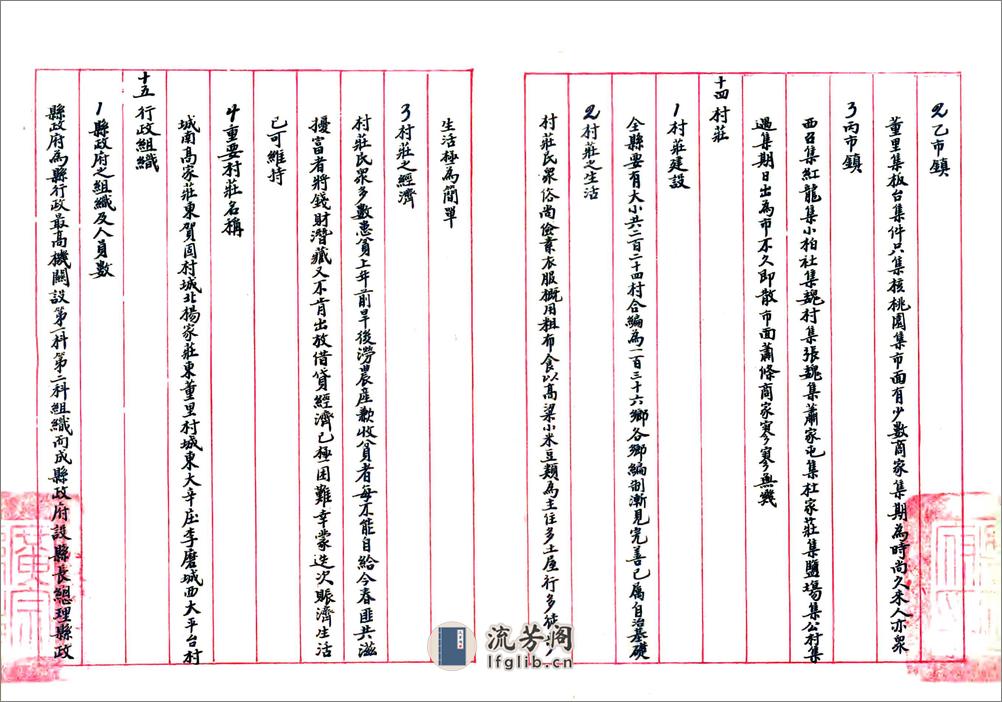 2乙市鎮
董里集板台集件只集核桃園集市面有少數商家集期為時尚久來人亦眾
3丙市鎮
西召集紅龍集小柏社集魏村集張魏集蕭家屯集杜家莊集鹽場集公村集
遇集期日出為市不久即散市面蕭條商家寥寥無幾
十四村莊
1村莊建設
全縣要有大小共二百二十四村合編為一百三十六鄉各鄉編制漸見完善已屬自治基礎
2村莊之生活
村莊民眾俗尚儉素衣服概用粗布食以高粱小米豆類為主住多土屋行多徒步
生活極為簡單
3村莊之經濟
村莊民眾多數患貧上年前旱後澇農產歉收貧者每不能自給今春匪共滋
擾富者將錢財潛藏又不肯出放借貸經濟已極困難幸蒙迭次賑濟生活
已可維持
4重要村莊名稱
城南高家莊東賀固村城北楊家莊東董里村城東大辛庄李磨城西大平台村
十五行政組織
1縣政府之組織及人員數
縣政府為縣行政最高機關設第一科第二科組織而成縣政府設縣長總理縣政
流芳阁
lfglib.cn